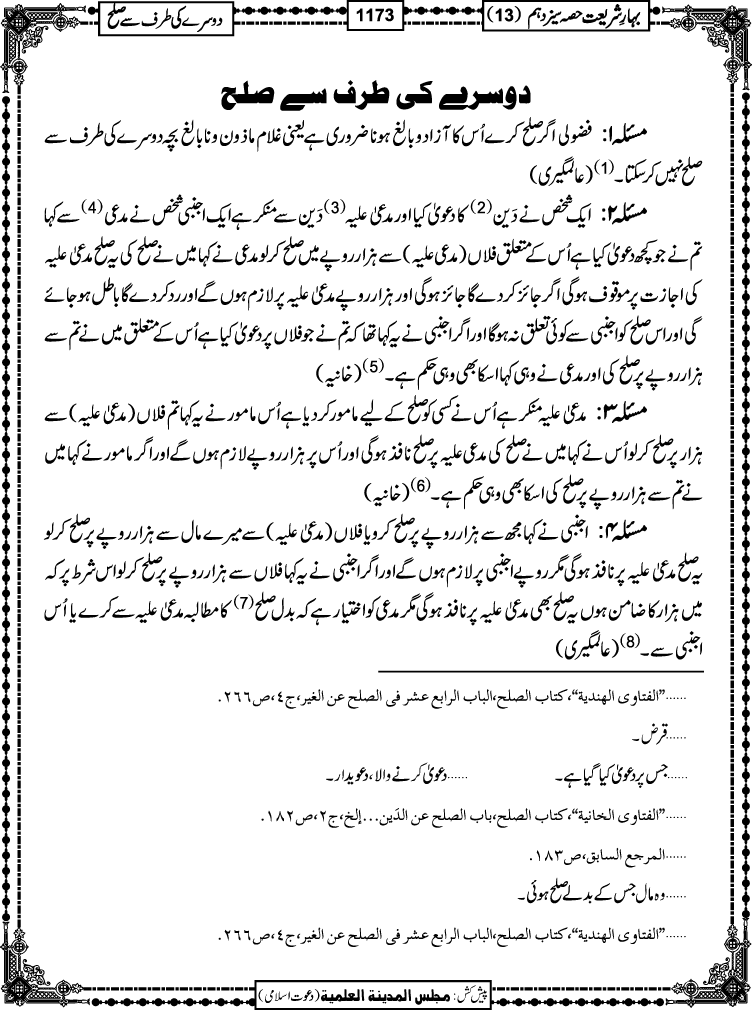 بہارِ شریعت حصہ سیزدہم (13)
1173
دوسرے کی طرف سے صلح
دوسرے کی طرف سے صلح
مسئلہ ۱: فضولی اگر صلح کرے اُس کا آزاد و بالغ ہونا ضروری ہے یعنی غلام ماذون و نابالغ بچہ دوسرے کی طرف سے
صلح نہیں کر سکتا۔(1) (عالمگیری)
مسئلہ ۲: ایک شخص نے دَین (2) کا دعویٰ کیا اور مدعیٰ علیہ (3) دَین سے منکر ہے ایک اجنبی شخص نے مدعی (4) سے کہا
تم نے جو کچھ دعویٰ کیا ہے اُس کے متعلق فلاں (مدعیٰ علیہ) سے ہزار روپے میں صلح کر لو مدعی نے کہا میں نے صلح کی یہ صلح مدعیٰ علیہ
کی اجازت پر موقوف ہوگی اگر جائز کر دے گا جائز ہوگی اور ہزار روپے مدعیٰ علیہ پر لازم ہوں گے اور رد کر دے گا باطل ہو جائے
گی اور اس صلح کو اجنبی سے کوئی تعلق نہ ہوگا اور اگر اجنبی نے یہ کہا تھا کہ تم نے جو فلاں پر دعویٰ کیا ہے اُس کے متعلق میں نے تم سے
ہزار روپے پر صلح کی اور مدعی نے وہی کہا اسکا بھی وہی حکم ہے۔(5) (خانیہ)
مسئلہ ۳: مدعیٰ علیہ منکر ہے اُس نے کسی کو صلح کے لیے مامور کر دیا ہے اُس مامور نے یہ کہا تم فلاں (مدعیٰ علیہ) سے
ہزار پر صلح کر لو اُس نے کہا میں نے صلح کی مدعیٰ علیہ پر صلح نافذ ہوگی اور اُس پر ہزار روپے لازم ہوں گے اور اگر مامور نے کہا میں
نے تم سے ہزار روپے پر صلح کی اسکا بھی وہی حکم ہے۔(6) (خانیہ)
مسئلہ ۴: اجنبی نے کہا مجھ سے ہزار روپے پر صلح کرو یا فلاں (مدعیٰ علیہ) سے میرے مال سے ہزار روپے پر صلح کر لو
یہ صلح مدعیٰ علیہ پر نافذ ہوگی مگر روپے اجنبی پر لازم ہوں گے اور اگر اجنبی نے یہ کہا فلاں سے ہزار روپے پر صلح کر لو اس شرط پر کہ
میں ہزار کا ضامن ہوں یہ صلح بھی مدعیٰ علیہ پر نافذ ہوگی مگر مدعی کو اختیار ہے کہ بدل صلح (7) کا مطالبہ مدعیٰ علیہ سے کرے یا اُس
اجنبی سے۔(8) (عالمگیری)
......"الفتاوی الهندية"،کتاب الصلح،الباب الرابع عشر فی الصلح عن الغیر،ج٤،ص٢٦٦.
......قرض۔
......جس پر دعویٰ کیا گیا ہے۔ ......دعویٰ کرنے والا، دعویدار۔
......"الفتاوی الخانية"،کتاب الصلح،باب الصلح عن الدَین...إلخ،ج٢،ص١٨٢.
......المرجع السابق،ص١٨٣.
......وہ مال جس کے بدلے صلح ہوئی۔
......"الفتاوی الهندية"،کتاب الصلح،الباب الرابع عشر فی الصلح عن الغیر،ج٤،ص٢٦٦.
پیش کش: مجلس المدينة العلمية (دعوت اسلامی)